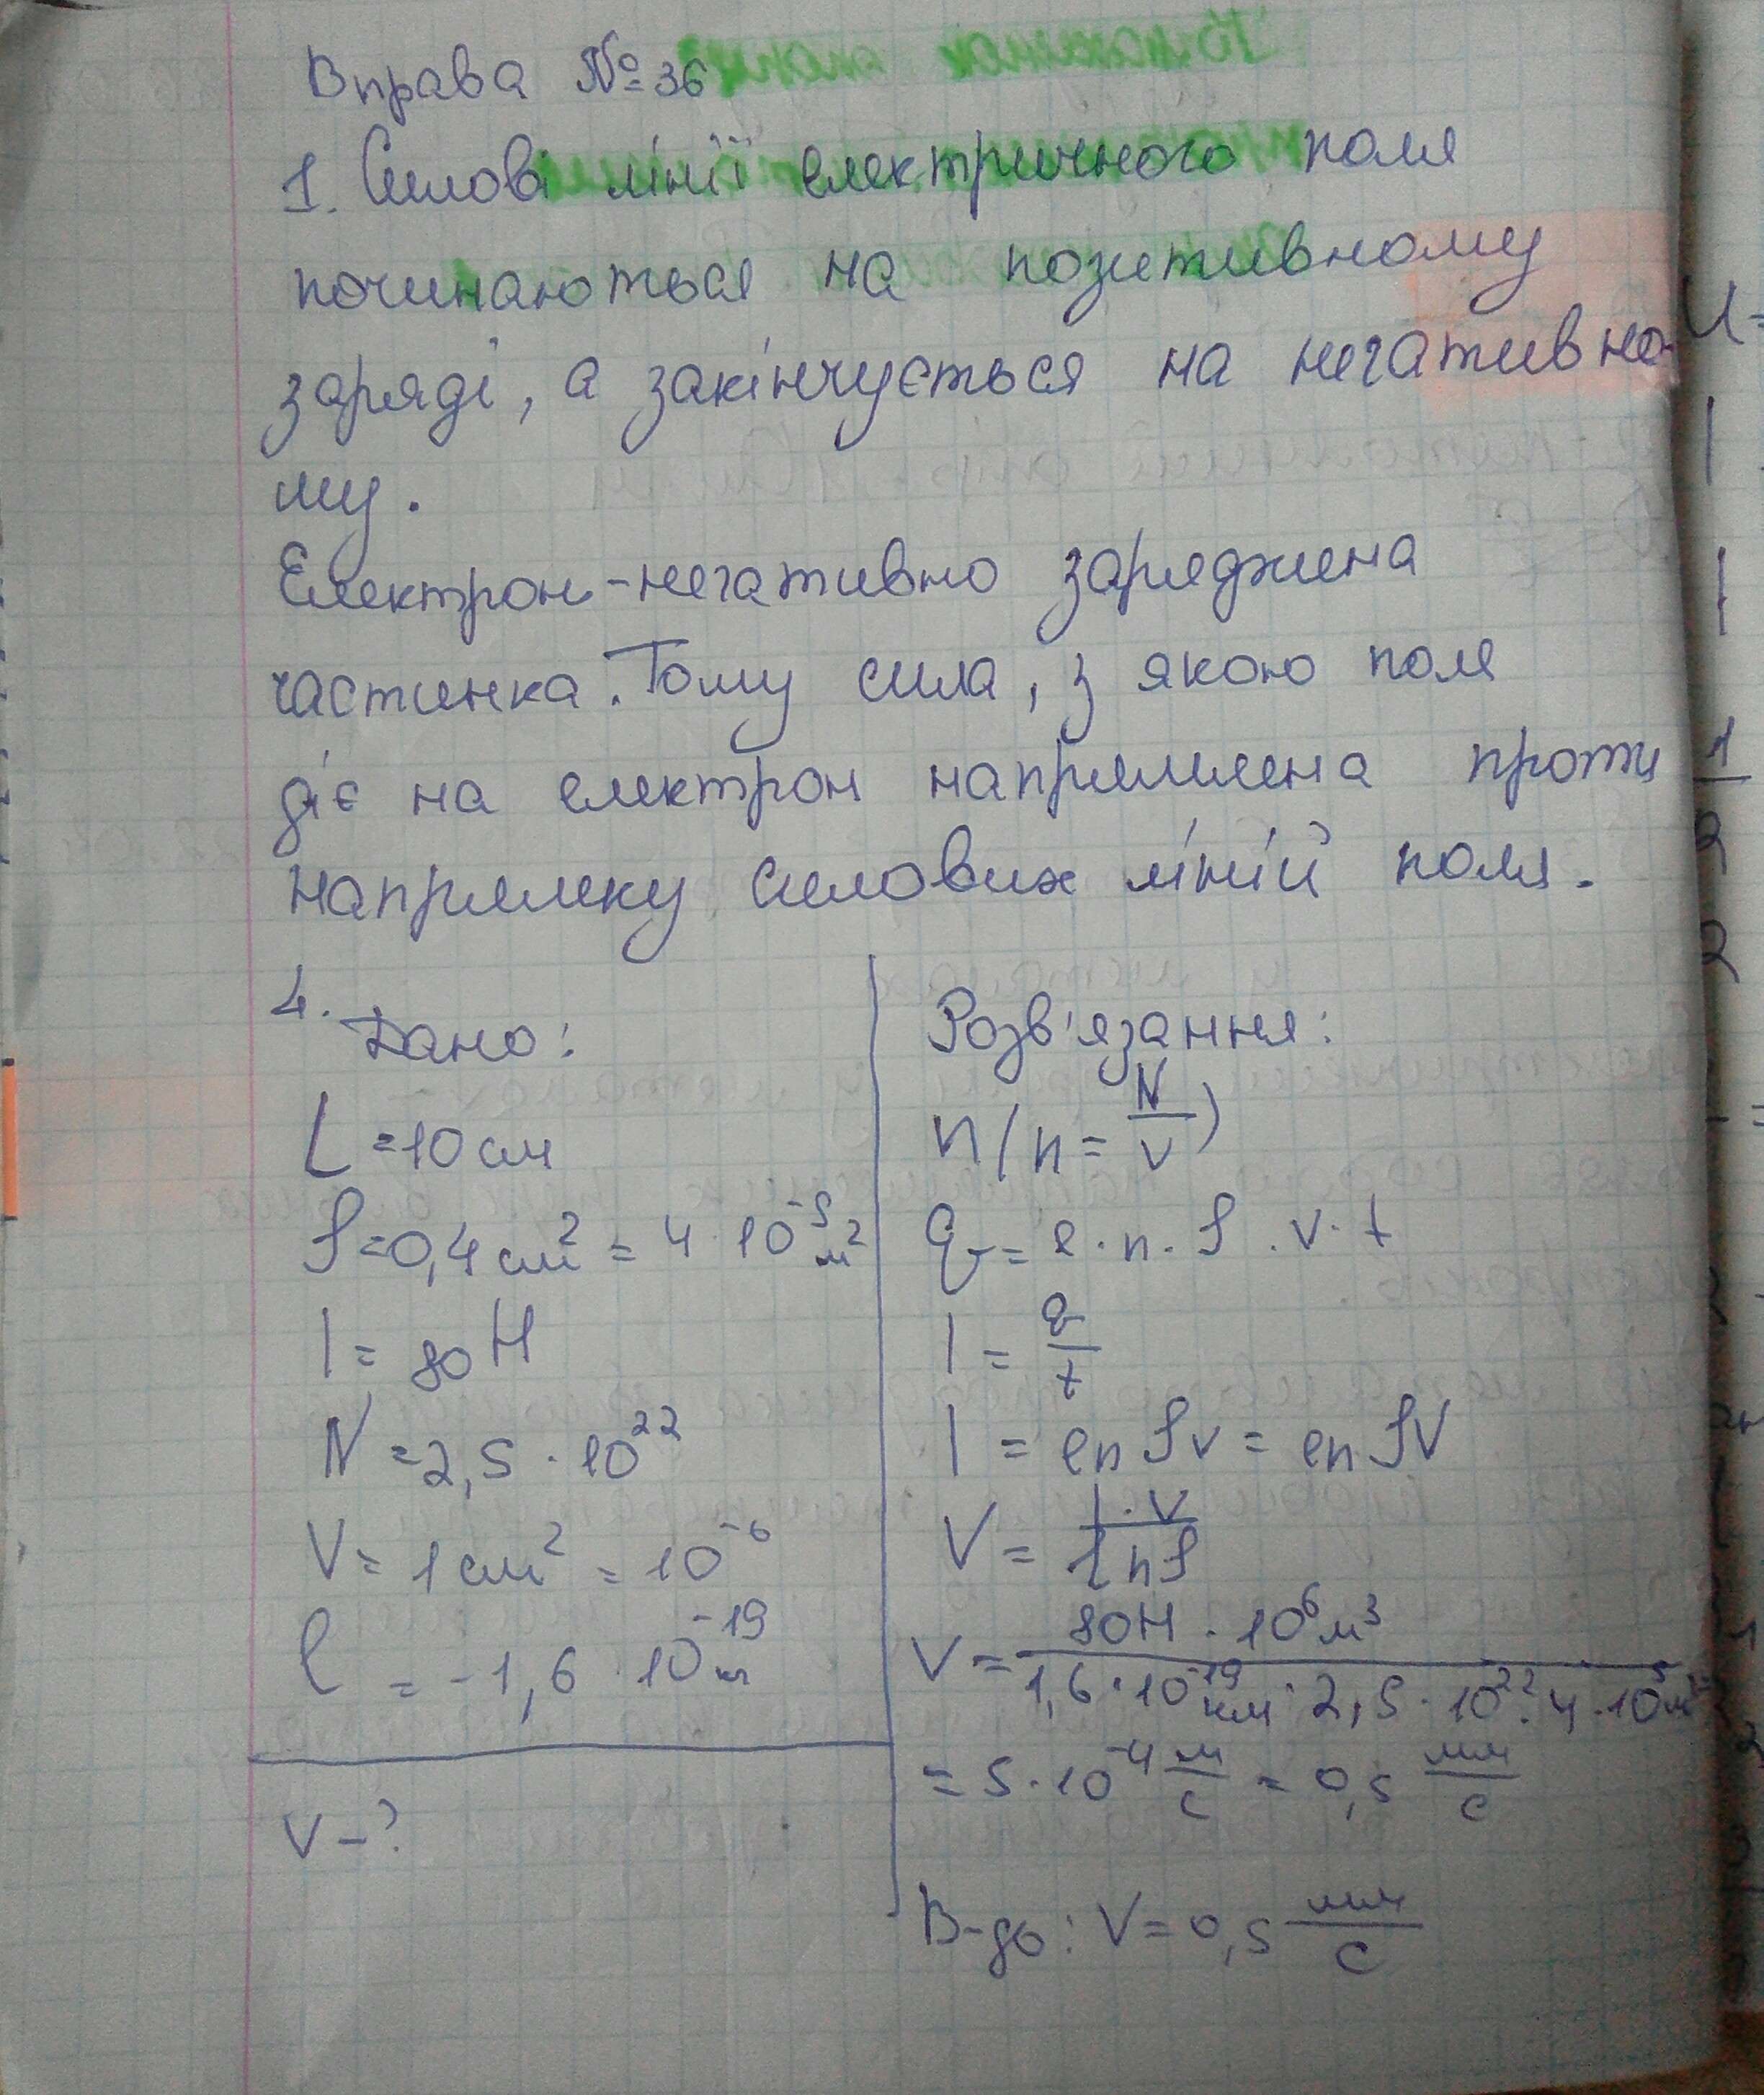 Вправа №36
1. Силові лінії електричного поля
починаються на позитивному
заряді, а закінчується на негативно-
му.
Електрон-негативно заряджена
частинка. Тому сила, з якою поля
діє на електрон напрямлена проти
напрямку силових ліній поля.
4. Дано:
L = 10 см
S = 0,4 см² = 4 · 10⁻⁵ м²
I = 80 Н
N = 2,5 · 10²²
V = 1 см² = 10⁻⁶
l = -1,6 · 10⁻¹⁹
V - ?
Розв'язання:
n (n = N/V)
q = e · n · S · v · t
I = q/t
I = enSv = enSV
V = I · V / lnS
V = 80Н · 10⁶ м³ / 1,6 · 10⁻¹⁹ кл · 2,5 · 10²² · 4 · 10⁵ м²
= 5 · 10⁻⁴ м/с = 0,5 мм/с
В-дь: V = 0,5 мм/с
U=
1
2
2